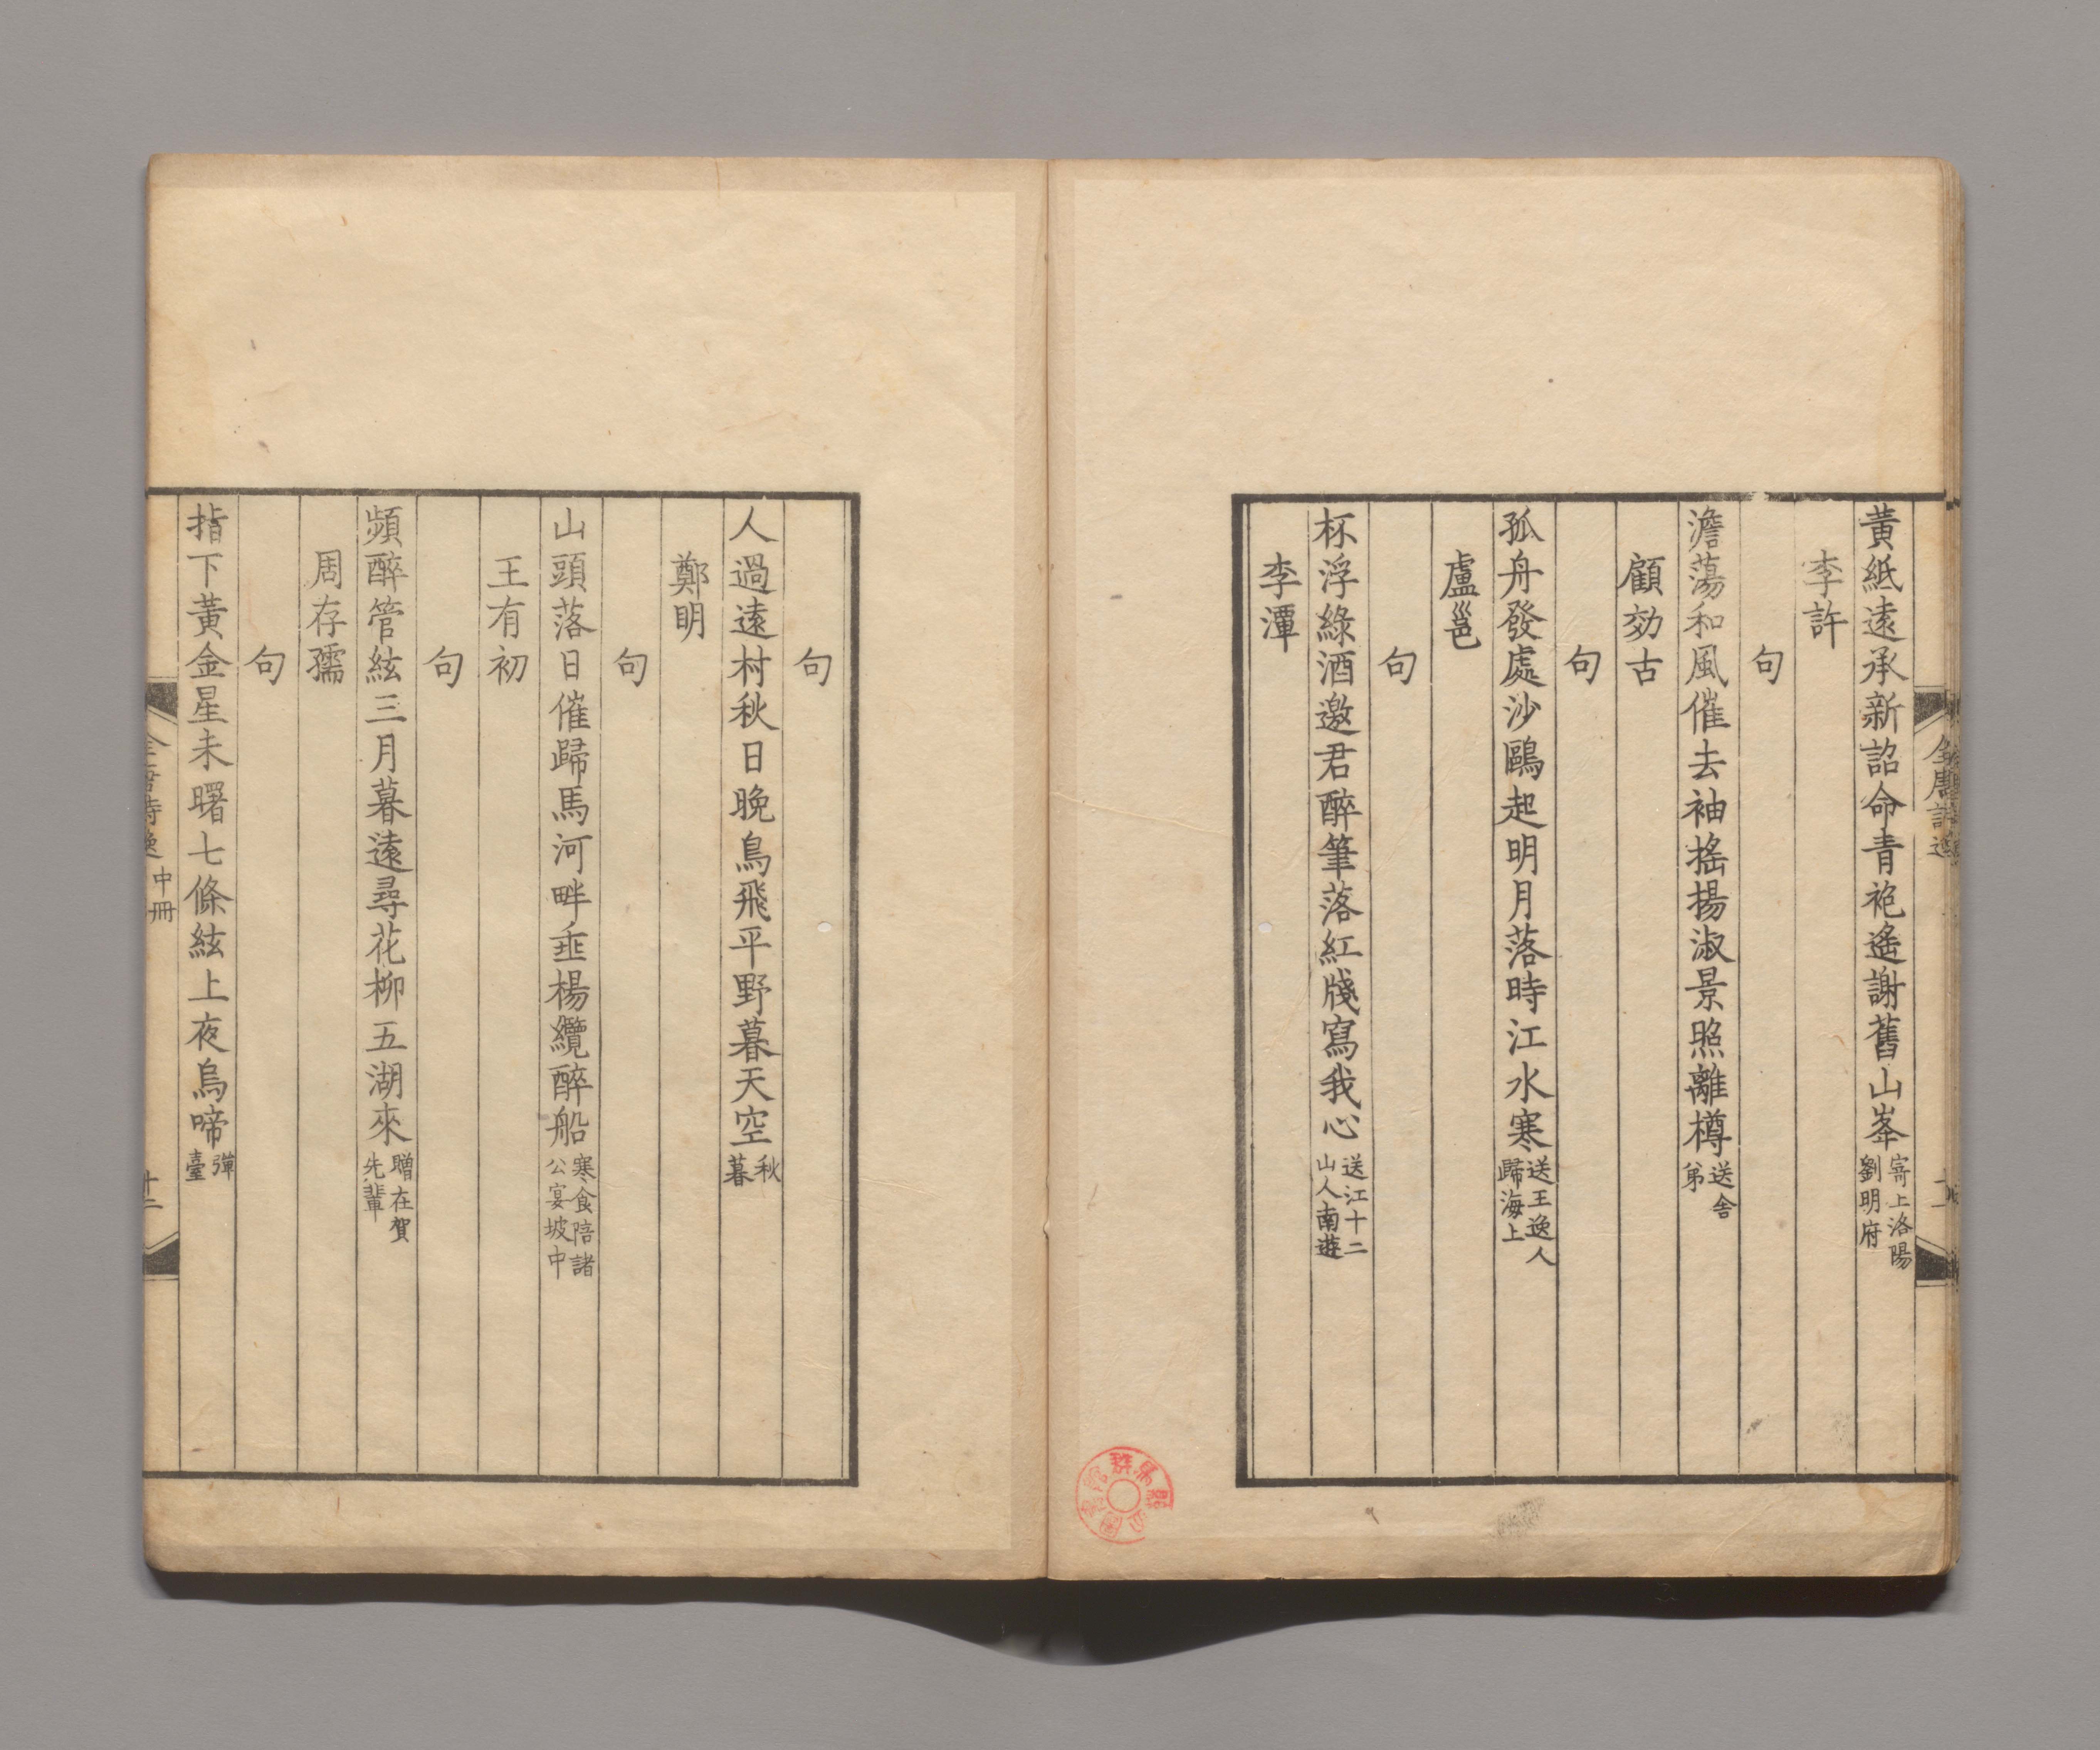 黃紙遠承新詔命青袍遙謝舊山峯寄上洛陽劉明府
李許
句
澹蕩和風催去袖搖揚淑景照離樽送舍弟
顧効古
句
孤舟發處沙鷗起明月落時江水寒送王逸人歸海上
盧邕
句
杯浮綠酒邀君醉筆落紅牋寫我心送江十二山人南遊
李潭
句
人過遠村秋日晚鳥飛平野暮天空秋暮
鄭明
句
山頭落日催歸馬河畔垂楊纜醉船寒食陪諸公宴坡中
王有初
句
頻醉管絃三月暮遠尋花柳五湖來贈在賀先輩
周存孺
句
指下黃金星未曙七條絃上夜烏啼彈臺
全唐詩逸 中冊